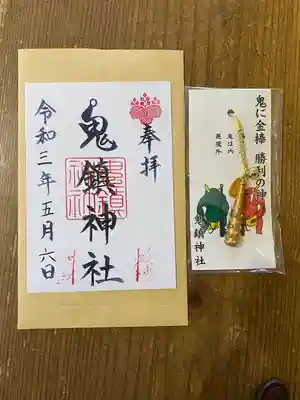 奉拝
鬼鎮神社
令和三年五月六日
鬼に金棒 勝利の神
鬼は内
悪魔外
鬼鎮神社